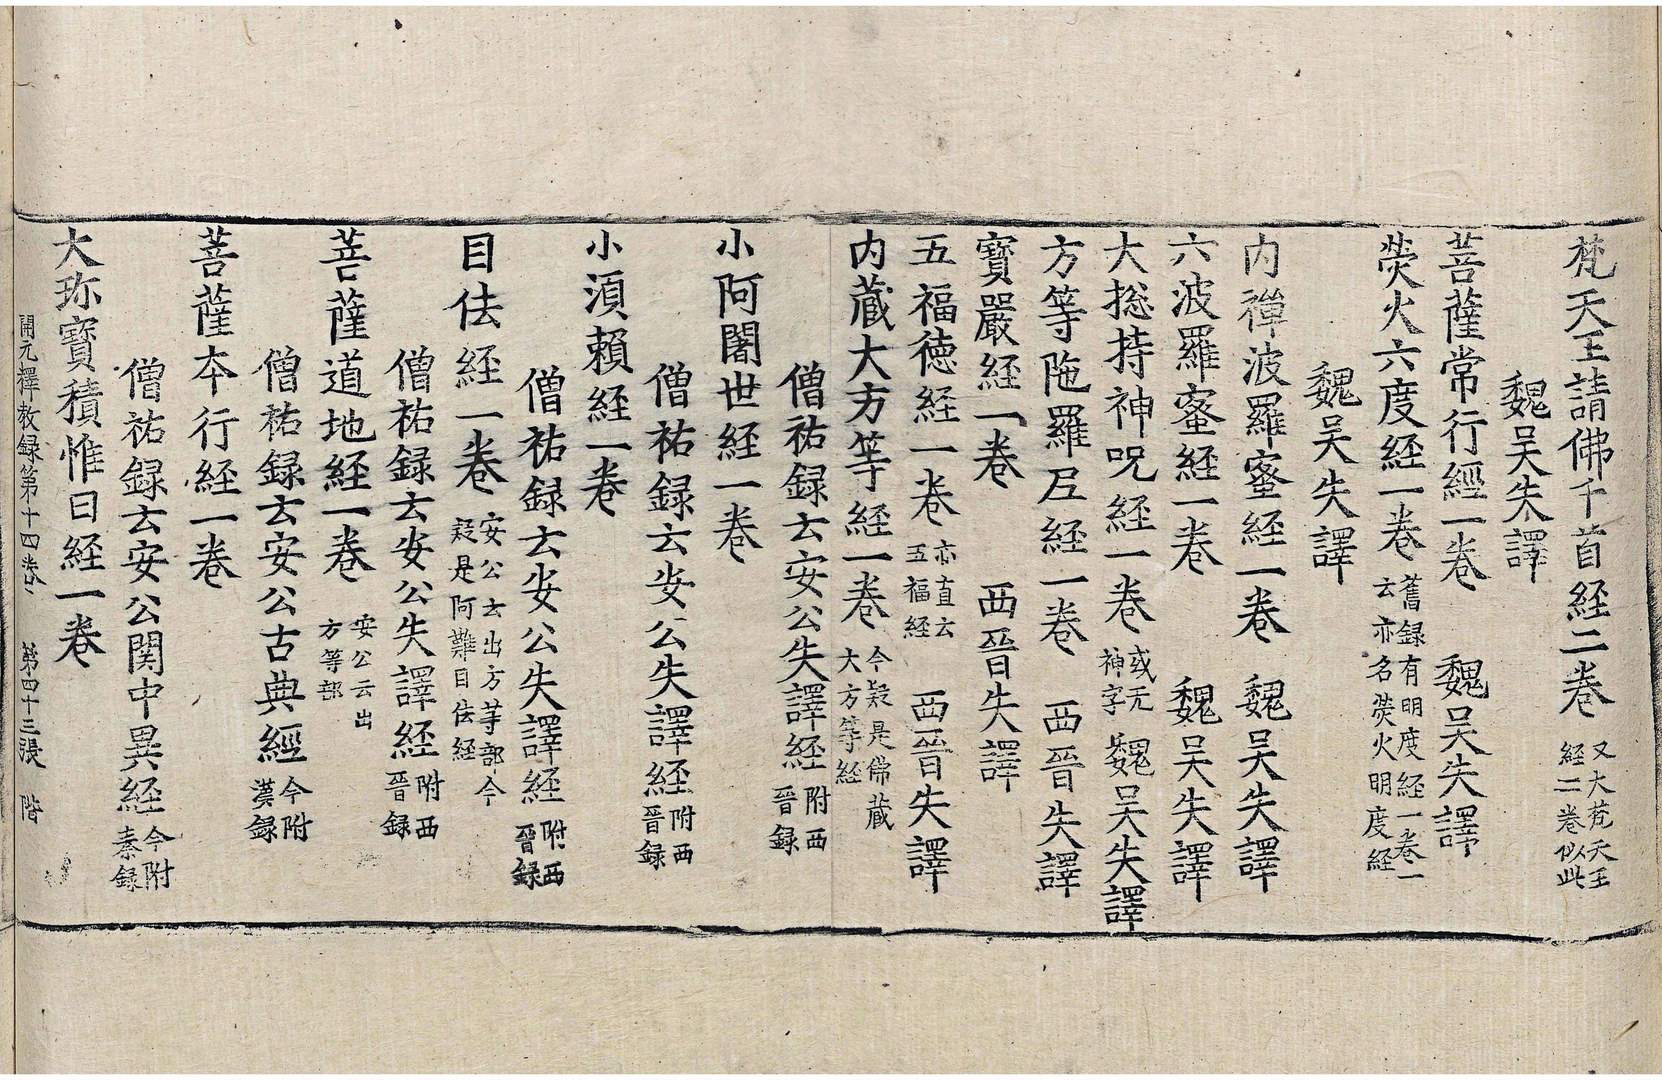 梵天王請佛千首経二巻 又大梵天王経二巻似此
魏吴失譯
菩薩常行經一巻 魏吴失譯
熒火六度経一巻 舊録有明度経一巻一云亦名熒火明度経
魏吴失譯
内禪波羅蜜経一巻 魏吴失譯
六波羅蜜経一巻 魏吴失譯
大揔持神呪経一巻 或无神字 魏吴失譯
方等陁羅尼経一巻 西晉失譯
寳嚴経一巻 西晉失譯
五福徳経一巻 亦直云五福経 西晉失譯
内蔵大方等経一巻 今疑是佛蔵大方等経
僧祐録云安公失譯経 附西晉録
小阿闍世経一巻
僧祐録云安公失譯経 附西晉録
小湏頼経一巻
僧祐録云安公失譯経 附西晉録
目佉経一巻 安公云出方等部今疑是阿難目佉経
僧祐録云安公失譯経 附西晉録
菩薩道地経一巻 安公云出方等部
僧祐録云安公古典經 今附漢録
菩薩本行経一巻
僧祐録云安公関中異経 今附秦録
大珎寳積惟曰経一巻
開元釋教録第十四巻 第四十三張 階